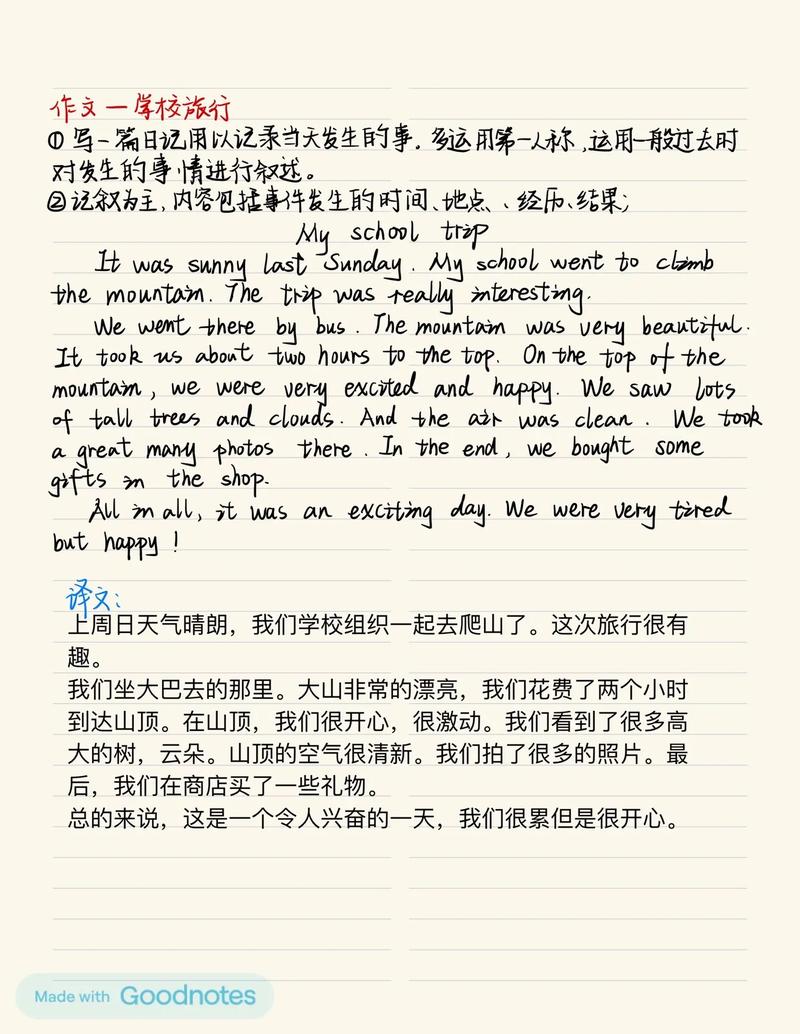 作文一学校旅行
① 写一篇日记用以记录当天发生的事。多运用第一人称,运用一般过去时
对发生的事情进行叙述。
②记叙为主,内容包括事件发生的时间、地点、、经历、结果;
My school trip
It was sunny last Sunday. My school went to climb
the mountain. The trip was really interesting.
We went there by bus. The mountain was very beautiful.
It took us about two hours to the top. On the top of the
mountain, we were very excited and happy. We saw lots
of tall trees and clouds. And the air was clean. We took
a great many photos there. In the end, we bought some
gifts in the shop.
All in all, it was an exciting day. We were very tired
but happy!
译文:
上周日天气晴朗，我们学校组织一起去爬山了。这次旅行很有
趣。
我们坐大巴去的那里。大山非常的漂亮，我们花费了两个小时
到达山顶。在山顶，我们很开心，很激动。我们看到了很多高
大的树，云朵。山顶的空气很清新。我们拍了很多的照片。最
后，我们在商店买了一些礼物。
总的来说，这是一个令人兴奋的一天，我们很累但是很开心。
Made with Goodnotes